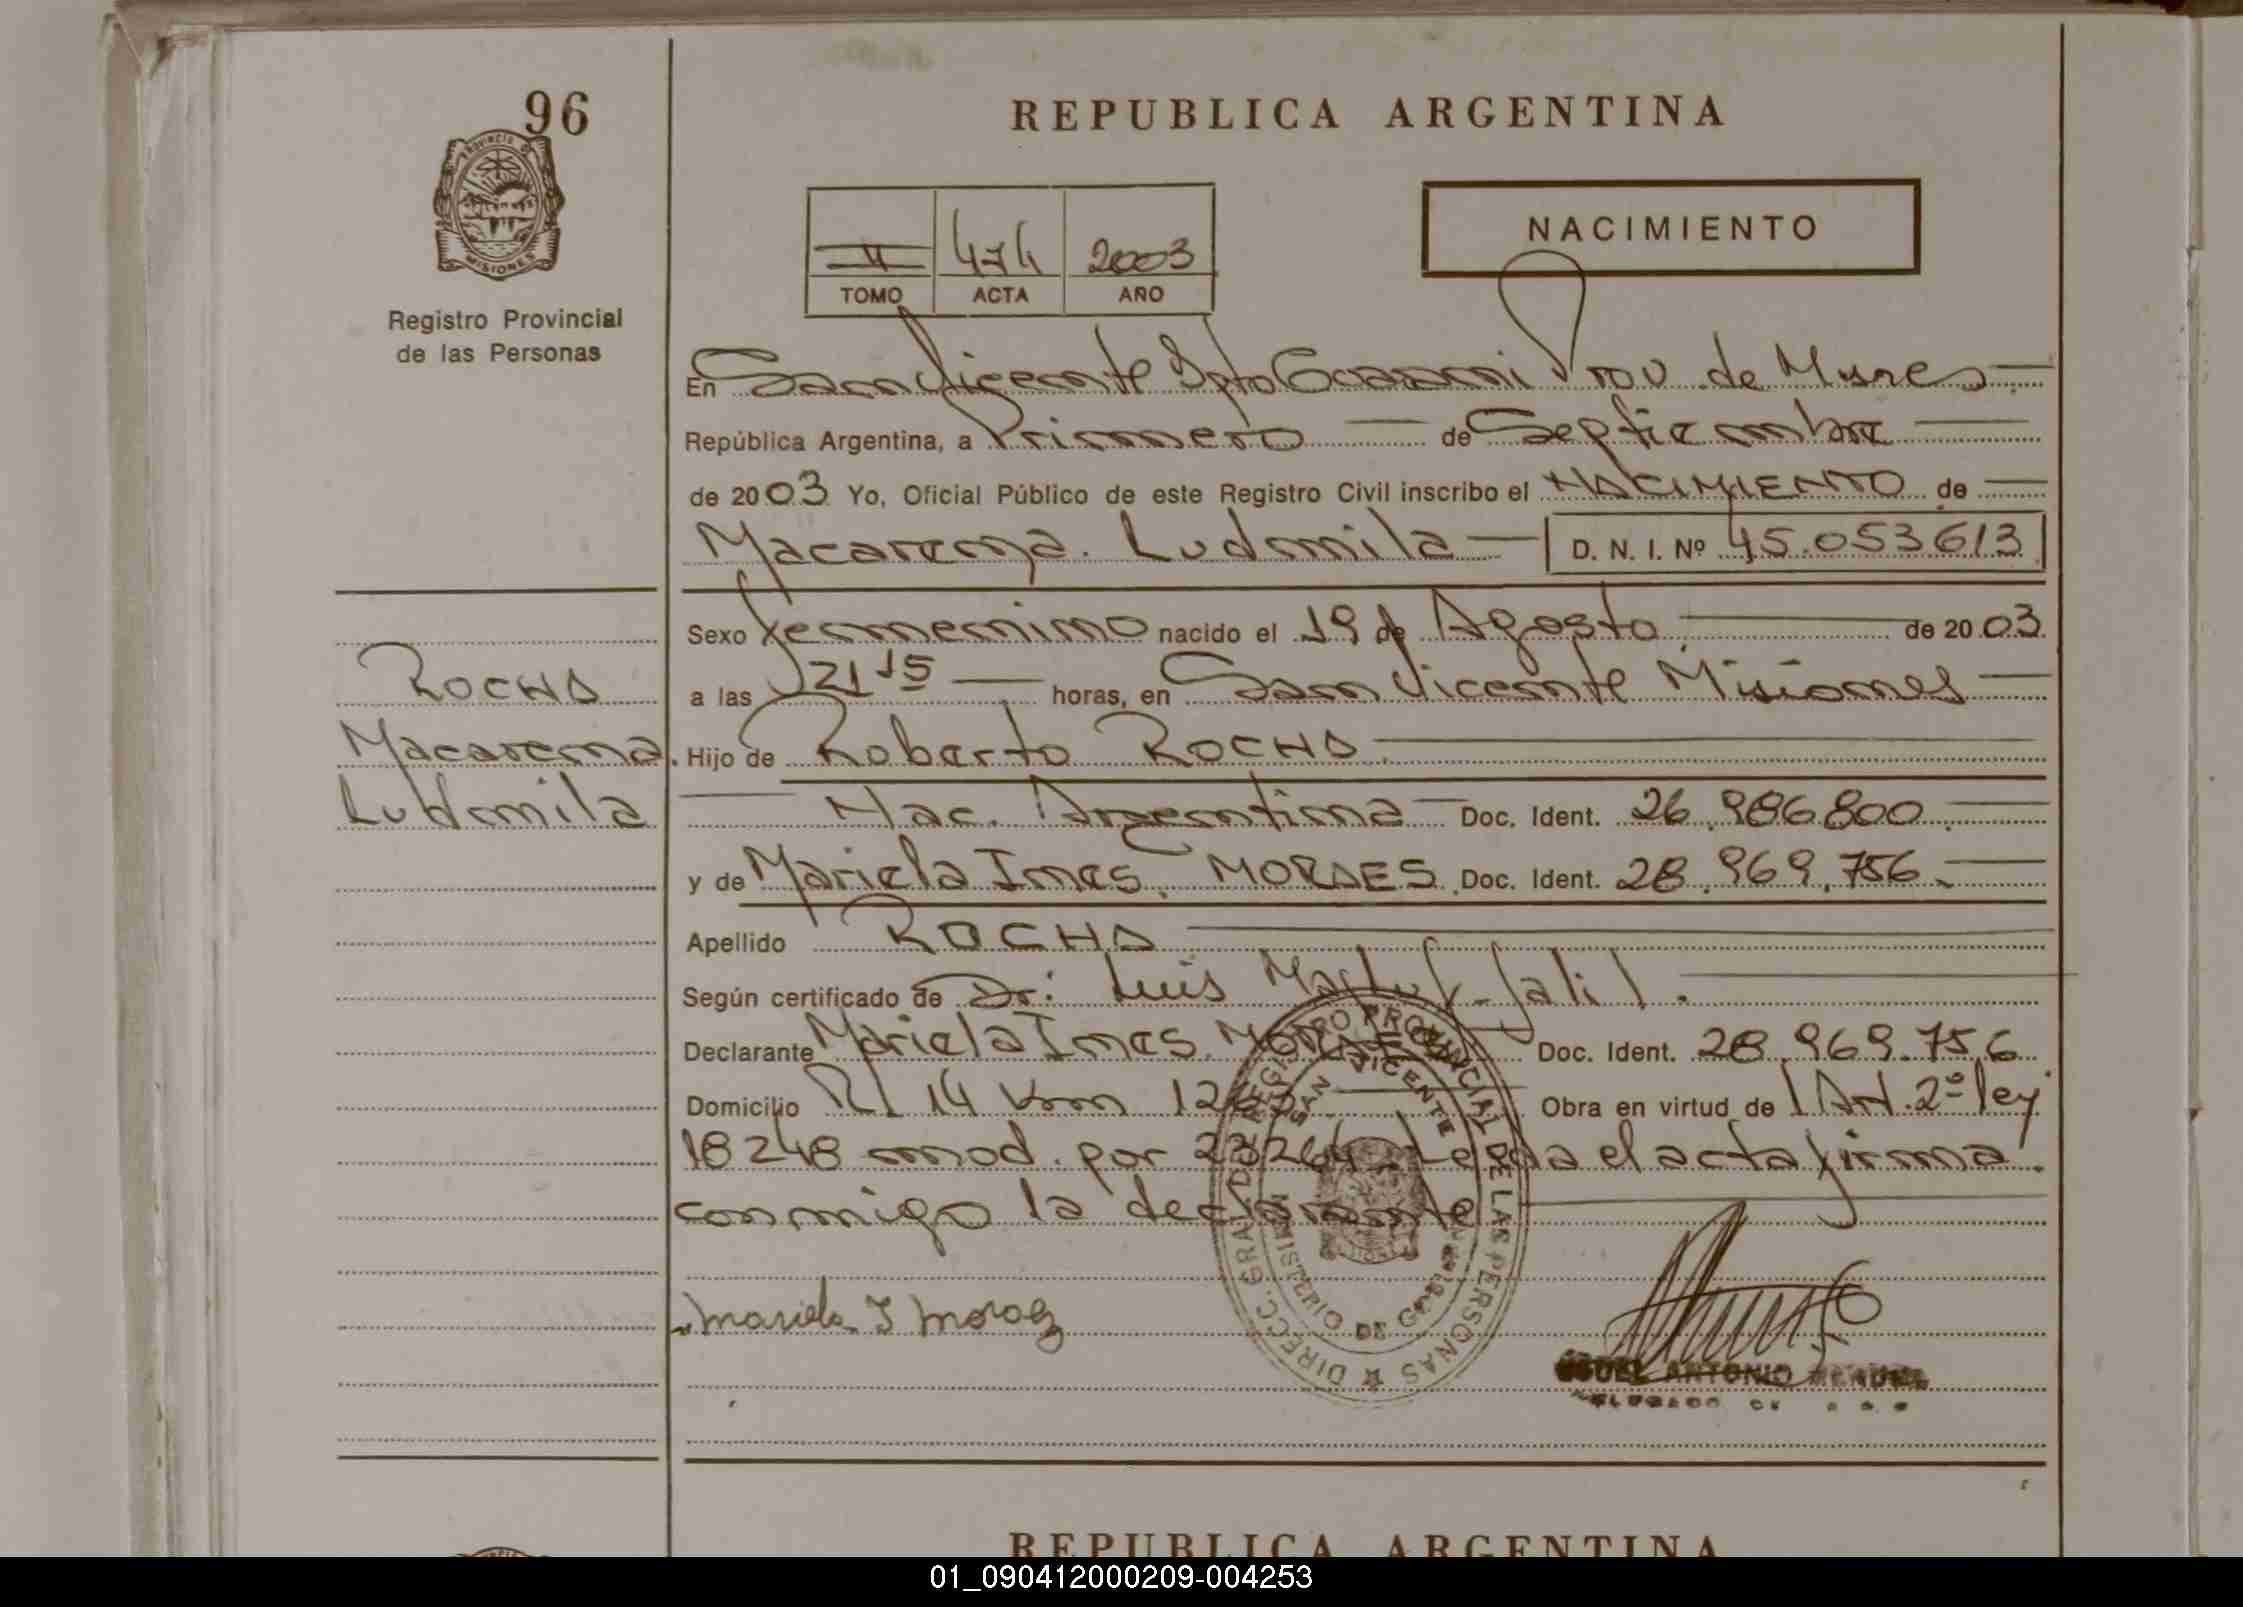 96
PROVINCIA DE
MISIONES
Registro Provincial
de las Personas
REPUBLICA ARGENTINA
NACIMIENTO
II 474 2003
TOMO ACTA AÑO
En San Vicente Dpto Guarani Prov. de Mnes
República Argentina, a Primero de Septiembre
de 2003 Yo, Oficial Público de este Registro Civil inscribo el NACIMIENTO de
Macarena Ludmila D. N. I. Nº 45.053613
Sexo femenino nacido el 19 de Agosto de 2003
a las 21 15 horas, en San Vicente Misiones
Hijo de Roberto ROCHA
Nac. Argentina Doc. Ident. 26.986.800
y de Mariela Ines MORAES Doc. Ident. 28.969.756
Apellido ROCHA
Según certificado de Dr. Luis Jalil
Declarante Mariela Ines MORAES Doc. Ident. 28.969.756
Domicilio R 14 Km Obra en virtud de Art. 2º ley
18248 mod. por Leida el acta firma
conmigo la declarante
ROCHA
Macarena
Ludmila
Mariela I Moraez
DIRECC. GRAL. DEL REGISTRO PROVINCIAL DE LAS PERSONAS
SAN VICENTE
MINISTERIO DE GOBIERNO
ANTONIO
REPUBLICA ARGENTINA
01_090412000209-004253